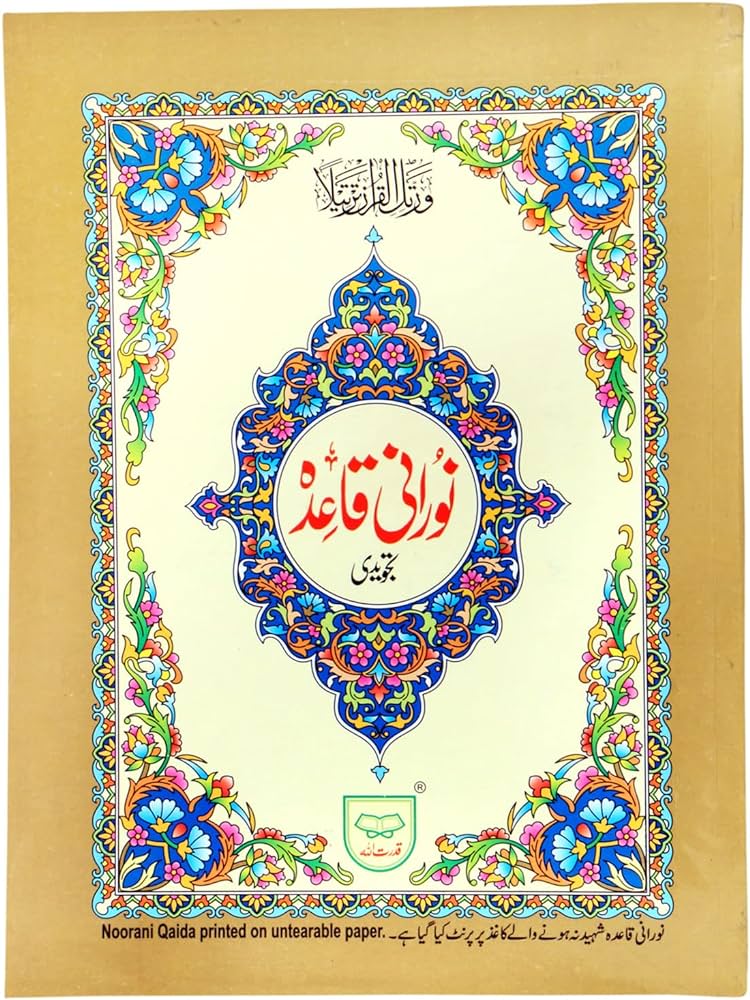 ورتل القرآن ترتیلا
نُورانی قاعِدہ
تجویدی
®
قدرت اللہ
Noorani Qaida printed on untearable paper. نورانی قاعدہ شہید نہ ہونے والے کاغذ پر پرنٹ کیا گیا ہے۔